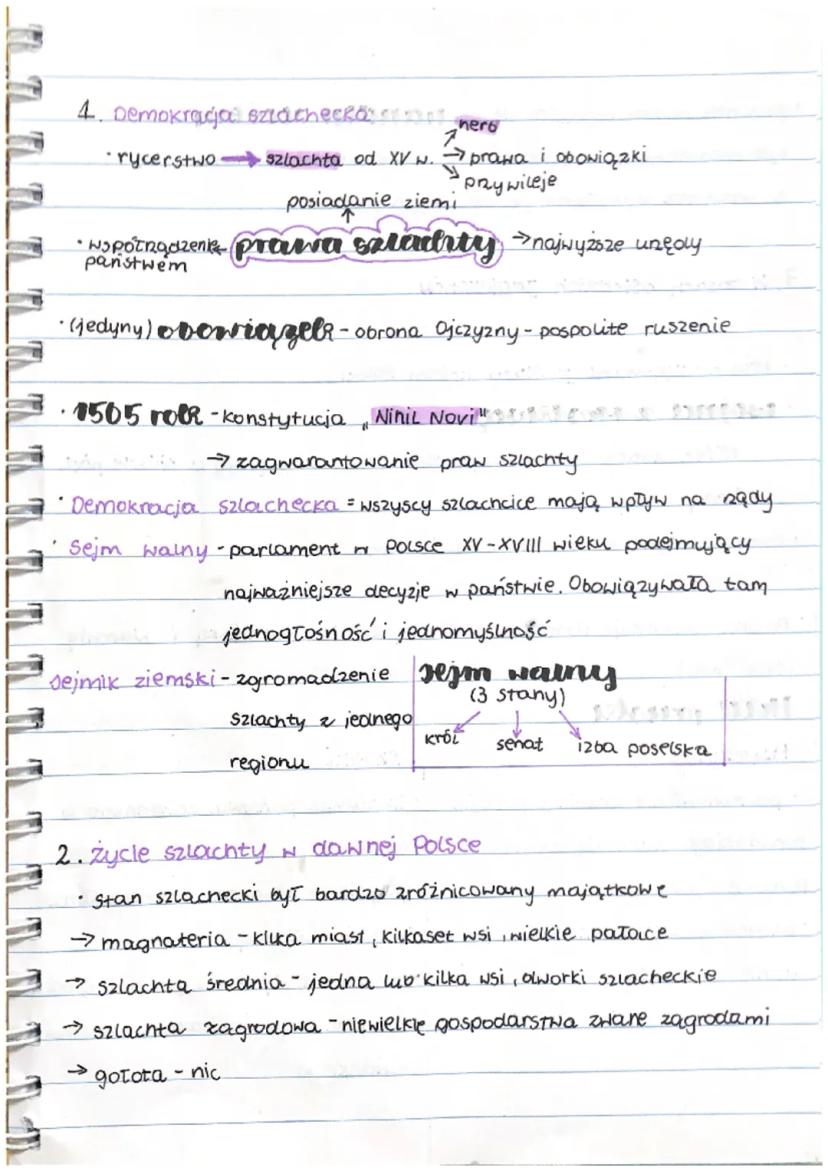 1. Demokracja szlachecka
herb
· rycerstwo → szlachta od XV w. → prawa i obowiązki
przywileje
posiadanie ziemi
· współrządzenie ← prawa szlachty → najwyższe urzędy
państwem
· (jedyny) obowiązek - obrona Ojczyzny - pospolite ruszenie
· 1505 rok - Konstytucja „Nihil Novi"
→ zagwarantowanie praw szlachty
· Demokracja szlachecka = wszyscy szlachcice mają wpływ na rządy
· Sejm walny - parlament w Polsce XV-XVIII wieku podejmujący
najważniejsze decyzje w państwie. Obowiązywała tam
jednogłośność i jednomyślność
Sejmik ziemski - zgromadzenie
szlachty z jednego
regionu
Sejm walny
(3 stany)
król senat izba poselska
2. życie szlachty w dawnej Polsce
· stan szlachecki był bardzo zróżnicowany majątkowe
→ magnateria - kilka miast, kilkaset wsi, wielkie pałace
→ szlachta średnia - jedna lub kilka wsi, dworki szlacheckie
→ szlachta zagrodowa - niewielkie gospodarstwa zwane zagrodami
→ gołota - nic